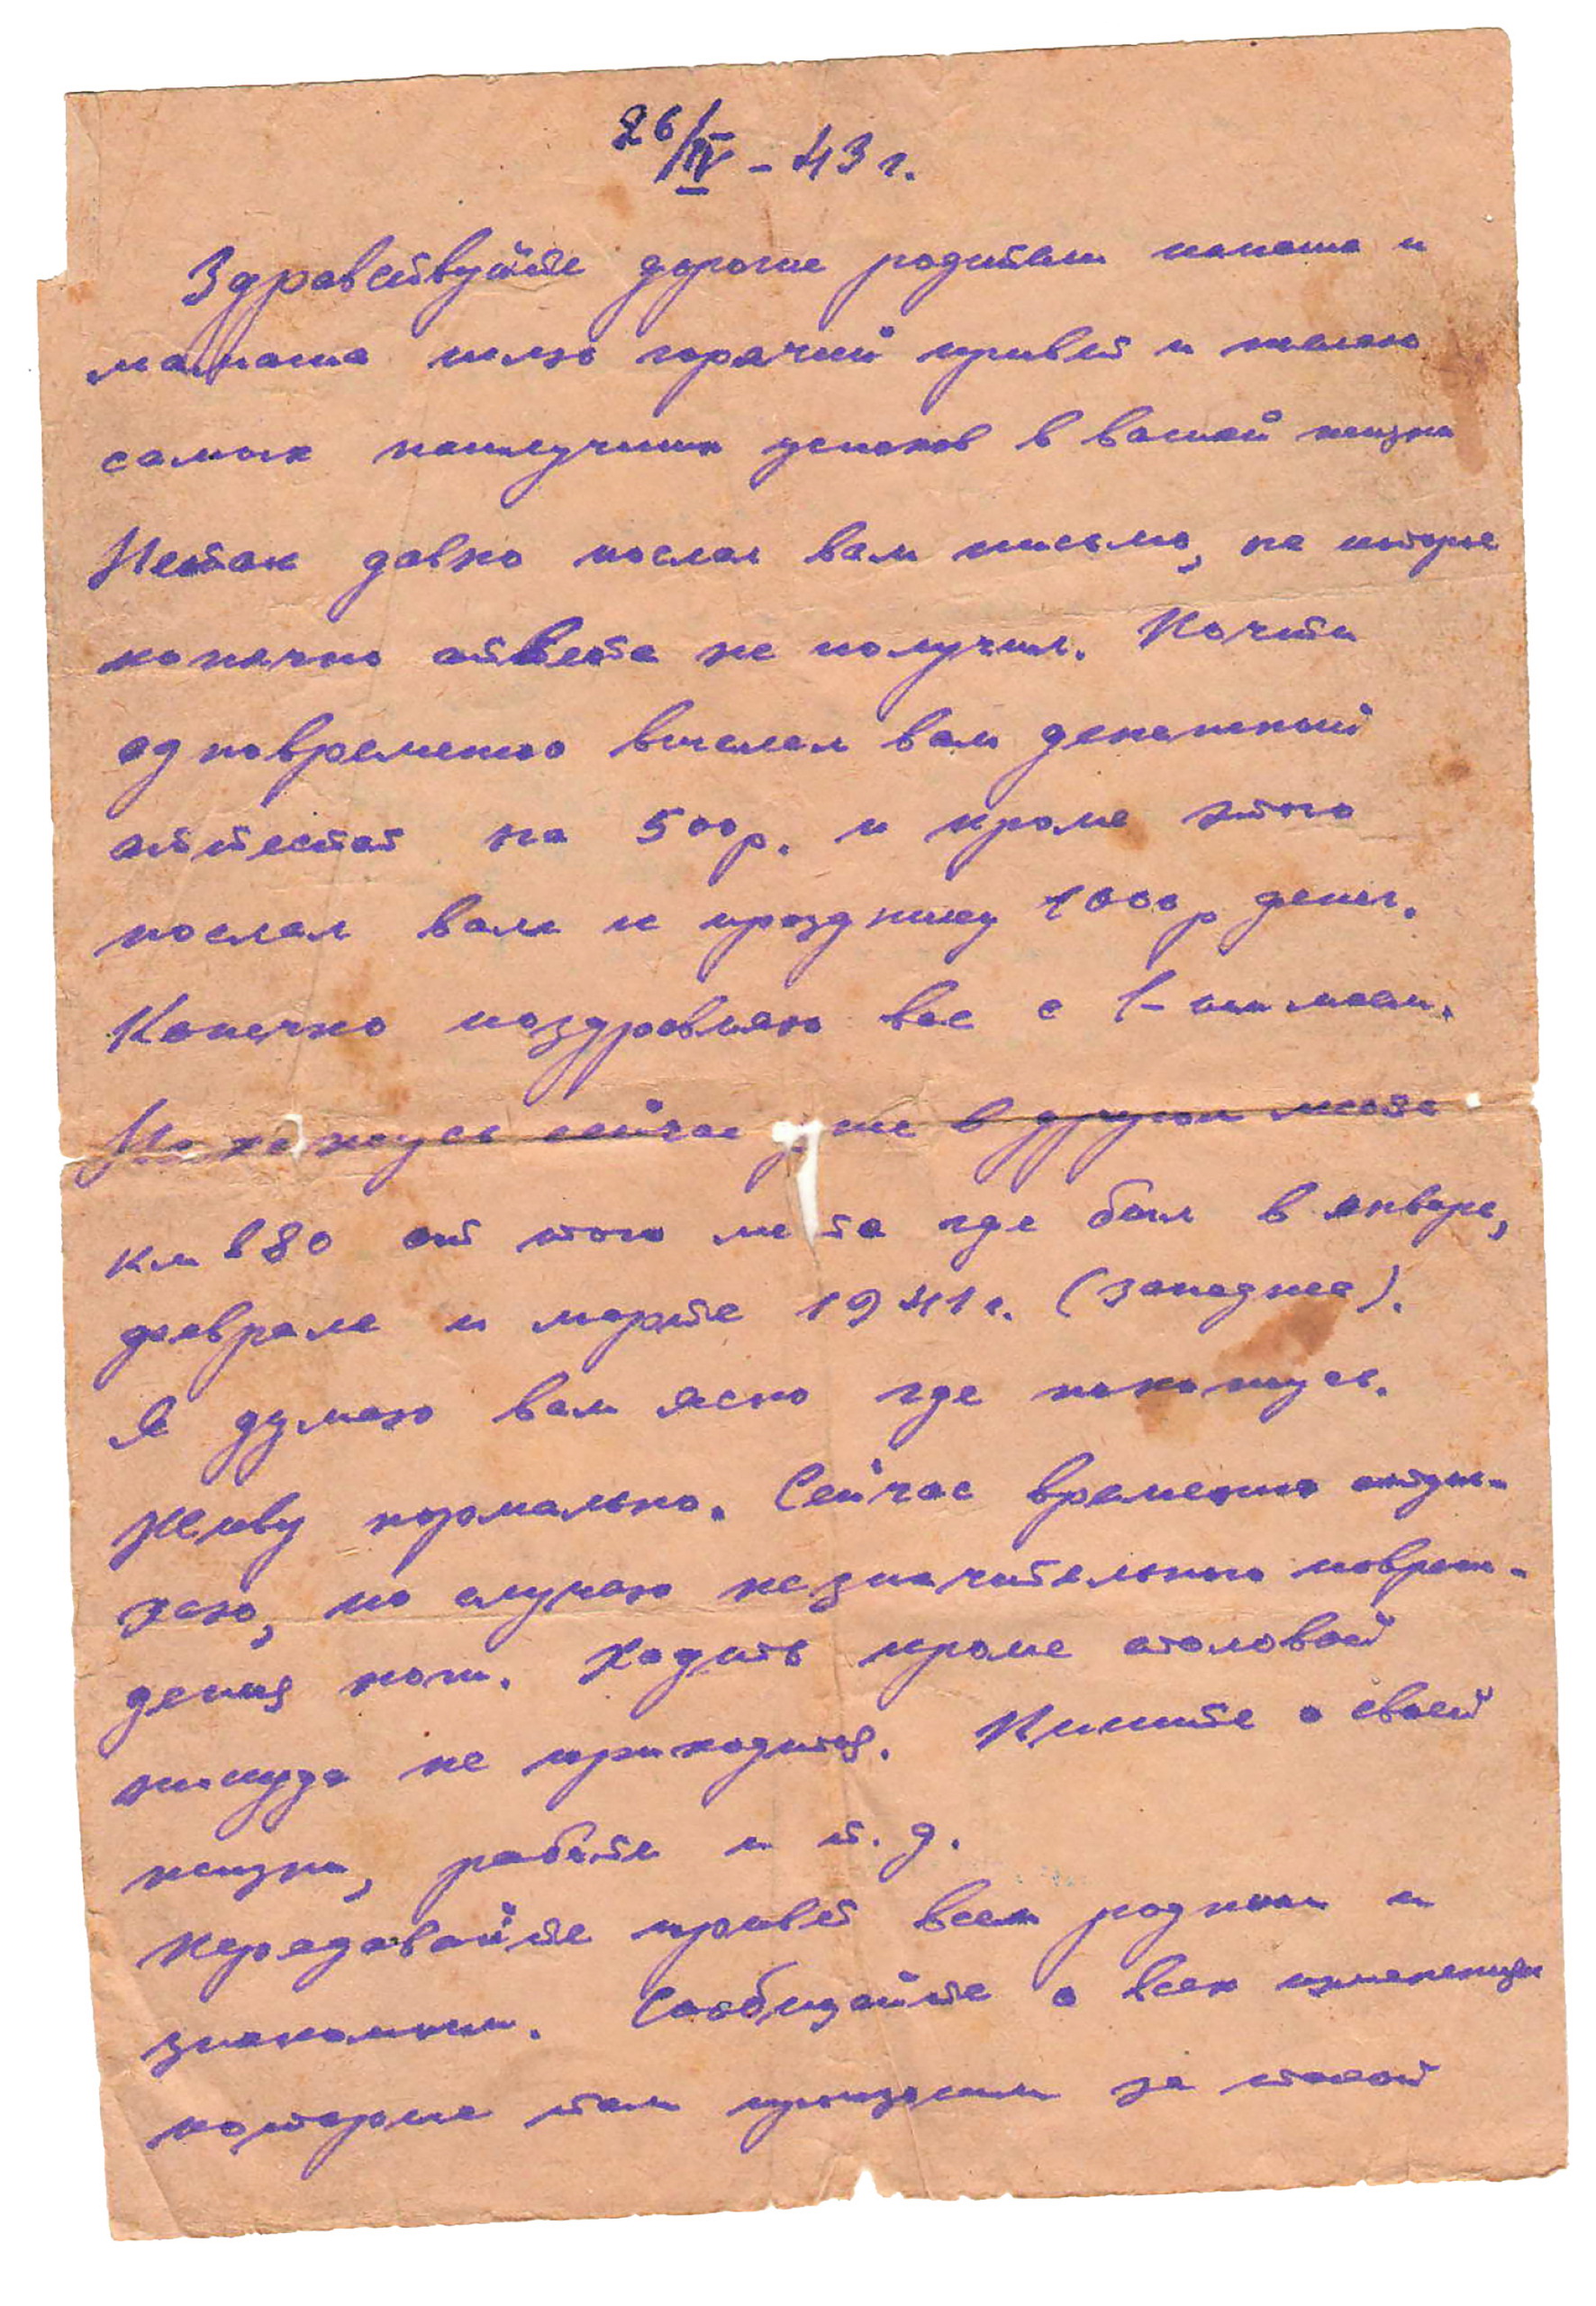 26/IV - 43 г.
Здравствуйте дорогие родители папаша и
мамаша шлю горячий привет и желаю
самых наилучших успехов в вашей жизни
Нетак давно послал вам письмо, на которое
конечно ответа не получил. Почти
одновременно выслал вам денежный
аттестат на 500р. и кроме этого
послал вам к празднику 1000р денег.
Конечно поздравляю вас с 1-ым маем.
Нахожусь сейчас уже в другом месте
км в 80 от того места где был в январе,
феврале и марте 1941г. (западнее).
Я думаю вам ясно где нахожусь.
Живу нормально. Сейчас временно отды-
хаю, по случаю незначительного повреж-
дения ноги. Ходить кроме столовой
никуда не приходится. Пишите о своей
жизни, работе и т. д.
Передавайте привет всем родным и
знакомым. Сообщайте о всех изменениях
которые там произошли за такой